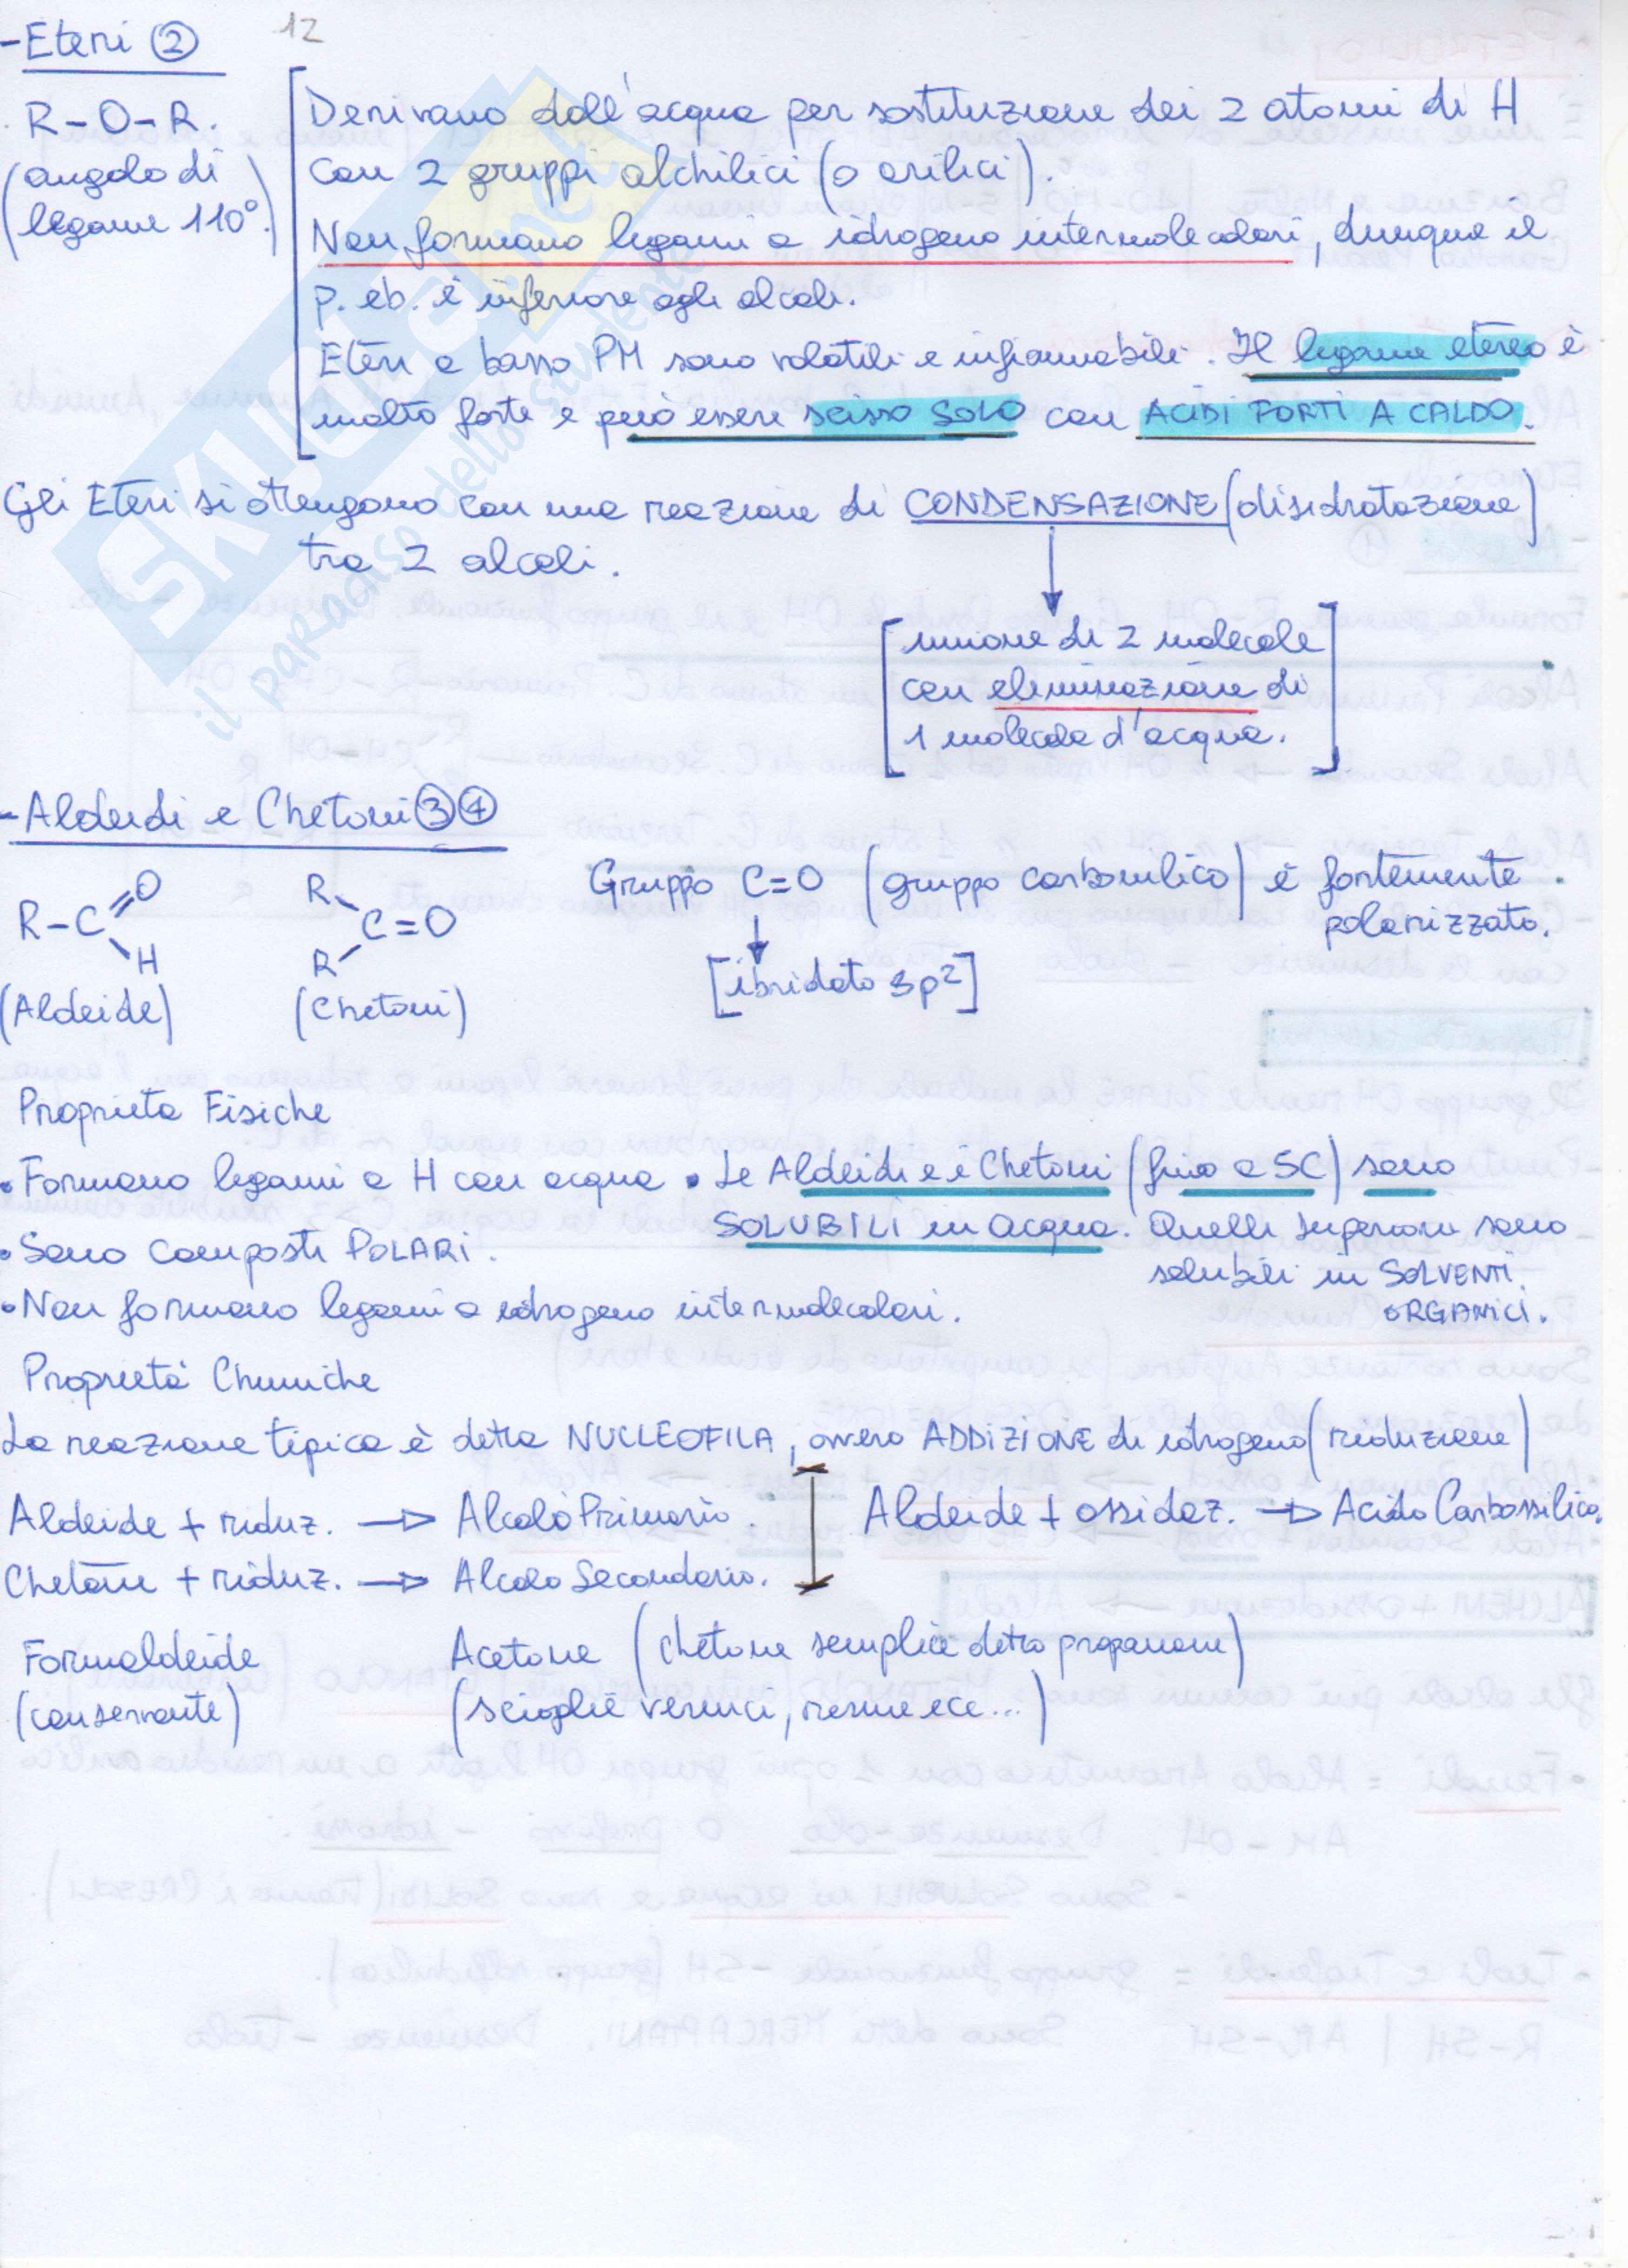 12
-Eteri ②
R-O-R.
(angolo di
legame 110°.)
Derivano dall'acqua per sostituzione dei 2 atomi di H
con 2 gruppi alchilici (o arilici).
Non formano legami a idrogeno intermolecolari, dunque il
p. eb. è inferiore agli alcoli.
Eteri a basso PM sono volatili e infiammabili. Il legame etereo è
molto forte e può essere scisso SOLO con ACIDI FORTI A CALDO.
Gli Eteri si ottengono con una reazione di CONDENSAZIONE (disidratazione)
tra 2 alcoli.
[unione di 2 molecole
con eliminazione di
1 molecola d'acqua.]
-Aldeidi e Chetoni ③④
R-C=O H
R R C=O
(Aldeide) (Chetoni)
Gruppo C=O (gruppo carbonilico) è fortemente
polarizzato.
[ibridato sp²]
Proprietà Fisiche
• Formano legami a H con acqua
• Sono composti POLARI.
• Non formano legami a idrogeno intermolecolari.
• Le Aldeidi e i Chetoni (fino a 5C) sono
SOLUBILI in acqua. Quelli superiori sono
solubili in SOLVENTI
ORGANICI.
Proprietà Chimiche
La reazione tipica è detta NUCLEOFILA, ovvero ADDIZIONE di idrogeno (riduzione)
Aldeide + riduz. → Alcolo Primario.
Chetone + riduz. → Alcolo Secondario.
Aldeide + ossidaz. → Acido Carbossilico.
Formaldeide
(conservante)
Acetone (chetone semplice detto propanone)
(scioglie vernici, resine ecc...)
SKUOLA.net
il paradiso dello studente